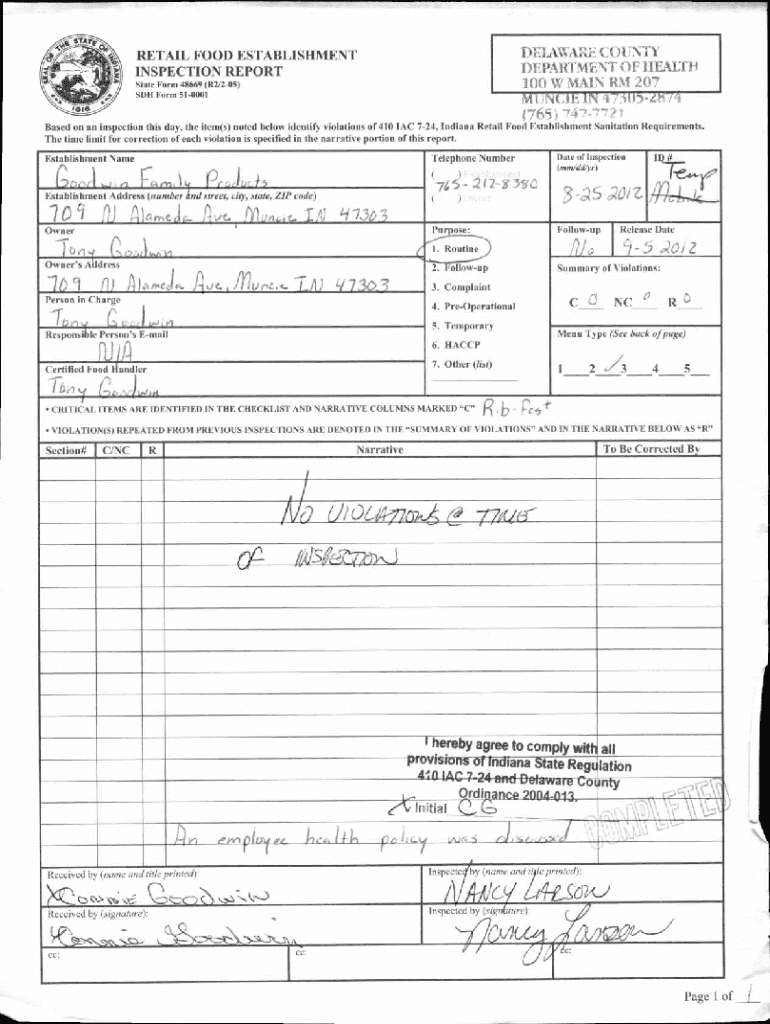 SEAL OF THE STATE OF INDIANA
1816
RETAIL FOOD ESTABLISHMENT
INSPECTION REPORT
State Form 48669 (R2/2-05)
SDH Form 51-0001
DELAWARE COUNTY
DEPARTMENT OF HEALTH
100 W MAIN RM 207
MUNCIE IN 47305-2874
(765) 747-7721
Based on an inspection this day, the item(s) noted below identify violations of 410 IAC 7-24, Indiana Retail Food Establishment Sanitation Requirements.
The time limit for correction of each violation is specified in the narrative portion of this report.
Establishment Name
Goodwin Family Products
Telephone Number
( ) Establishment
765-212-8380
( ) Owner
Date of Inspection
(mm/dd/yr)
8-25 2012
ID #
Temp
Mobile
Establishment Address (number and street, city, state, ZIP code)
709 N Alameda Ave, Muncie IN 47303
Owner
Tony Goodwin
Owner's Address
709 N Alameda Ave, Muncie IN 47303
Person in Charge
Tony Goodwin
Responsible Person's E-mail
N/A
Certified Food Handler
Tony Goodwin
Purpose:
1. Routine
2. Follow-up
3. Complaint
4. Pre-Operational
5. Temporary
6. HACCP
7. Other (list)
Follow-up
No
Release Date
9-5 2012
Summary of Violations:
C 0 NC 0 R 0
Menu Type (See back of page)
1 2 ✓ 3 4 5
• CRITICAL ITEMS ARE IDENTIFIED IN THE CHECKLIST AND NARRATIVE COLUMNS MARKED "C" Rib-Fest
• VIOLATION(S) REPEATED FROM PREVIOUS INSPECTIONS ARE DENOTED IN THE "SUMMARY OF VIOLATIONS" AND IN THE NARRATIVE BELOW AS "R"
Section# C/NC R Narrative To Be Corrected By
NO VIOLATIONS @ TIME
OF INSPECTION
I hereby agree to comply with all
provisions of Indiana State Regulation
410 IAC 7-24 and Delaware County
Ordinance 2004-013.
X Initial CG
COMPLETED
An employee health policy was discussed
Received by (name and title printed):
X Connie Goodwin
Inspected by (name and title printed):
NANCY LARSON
Received by (signature):
Connie Goodwin
Inspected by (signature):
Nancy Larson
cc:
cc:
cc:
Page 1 of 1